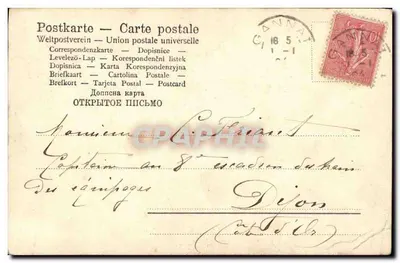 Postkarte — Carte postale
Weltpostverein — Union postale universelle
Correspondenzkarte — Dopisnice —
Levelező-Lap — Korespondenční lístek
Dopisnica — Karta Korespondencyjna
Briefkaart — Cartolina Postale —
Brefkort — Tarjeta Postal — Postcard
Дописна карта
ОТКРЫТОЕ ПИСЬМО
GANNAT
16 5
GANNAT
CPAPHIL
Monsieur C.
Capitaine au 8e escadron du train
des équipages
Dijon
(Côte d'Or)